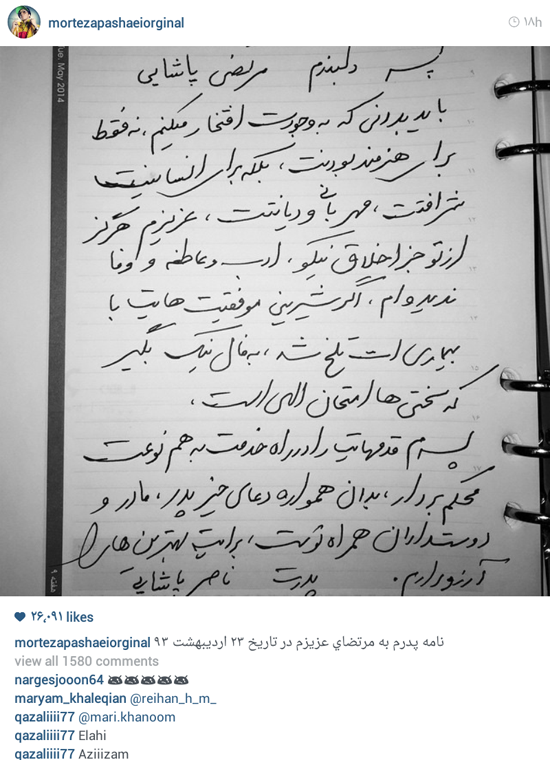 mortezapashaeiorginal
۱۸h
Tue. May 2014
پسر دلبندم مرتضی پاشایی
باید بدونی که به وجودت افتخار میکنم، نه فقط
برای هنرمند بودنت، بلکه برای انسانیت
شرافتت، مهربانی و دیانتت، عزیزم هرگز
از تو جز اخلاق نیکو، ادب و عاطفه و وفا
ندیده ام، اگر شیرینی موفقیت هایت با
بیماری ات تلخ شد، به فال نیک بگیر
که سختی ها امتحان الهی است،
پسرم قدمهایت را در راه خدمت به هم نوعت
محکم بردار، بدان همواره دعای خیر پدر، مادر و
دوستداران همراه توست، برایت بهترین های را
آرزو دارم. پدرت ناصر پاشایی
هفته ۹
۲۶,۰۹۱ likes
mortezapashaeiorginal نامه پدرم به مرتضاي عزيزم در تاريخ ۲۳ ارديبهشت ۹۳
view all 1580 comments
nargesjooon64
maryam_khaleqian @reihan_h_m_
qazaliiii77 @mari.khanoom
qazaliiii77 Elahi
qazaliiii77 Aziiizam